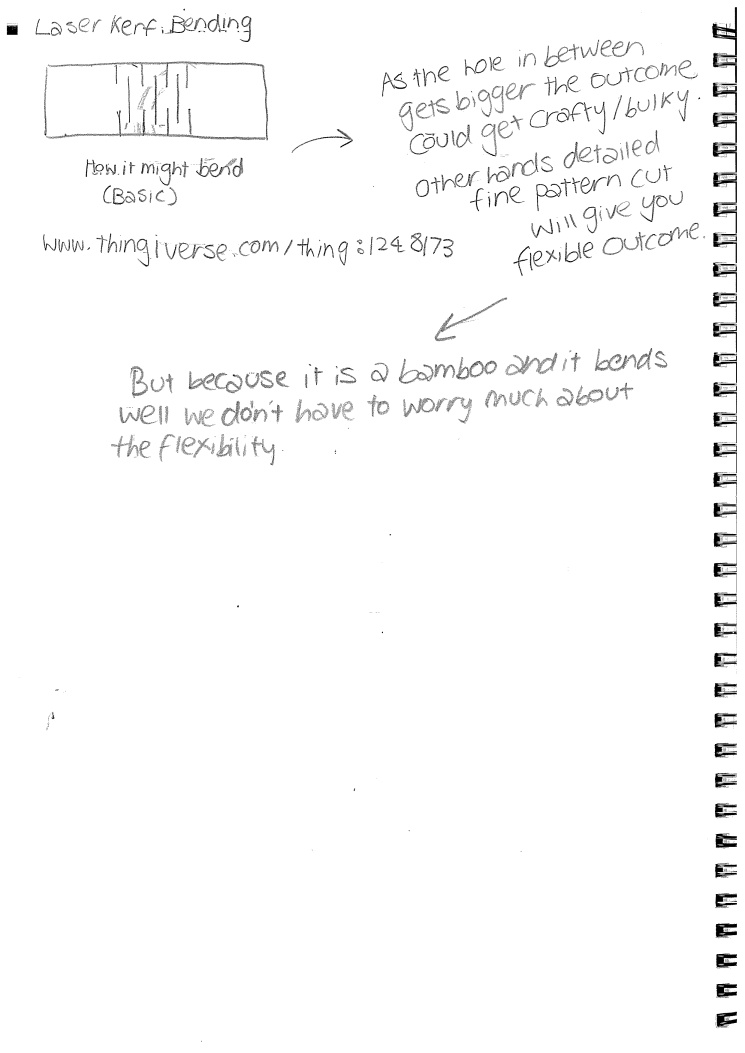 Laser Kerf. Bending
How it might bend
(Basic)
www.thingiverse.com/thing:1248173
As the hole in between
gets bigger the outcome
could get crafty/bulky.
Other hands detailed
fine pattern cut
will give you
flexible outcome.
But because it is a bamboo and it bends
well we don't have to worry much about
the flexibility.